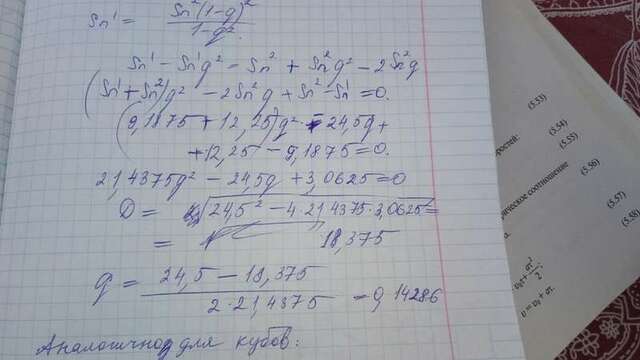 Sn' = Sn²(1-q)² / 1-q².
Sn' - Sn'q² = Sn² + Sn²q² - 2Sn²q
(Sn' + Sn²)q² - 2Sn²q + Sn² - Sn' = 0.
(9,1875 + 12,25)q² - 24,5q +
+ 12,25 - 9,1875 = 0.
21,4375q² - 24,5q + 3,0625 = 0
D = √24,5² - 4·21,4375·3,0625 =
= 18,375
q = 24,5 - 18,375 / 2·21,4375 = 0,14286
Аналогично для кубов:
(5.53)
(5.54)
(5.55)
(5.56)
соотношение
(5.57)
(5.58)